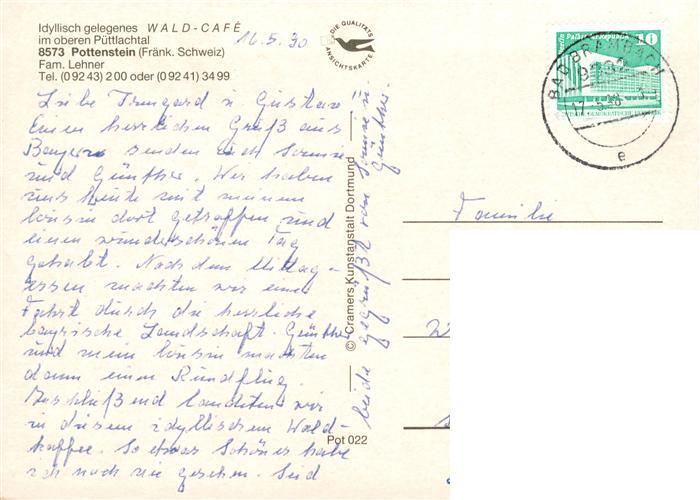 Idyllisch gelegenes WALD-CAFÉ
im oberen Püttlachtal
8573 Pottenstein (Fränk. Schweiz)
Fam. Lehner
Tel. (0 92 43) 2 00 oder (0 92 41) 34 99
16.5.90
DIE QUALITÄTS
ANSICHTSKARTE
10
BAD BRAMBACH
e
Liebe Irmgard u. Gustav!!
Einen herrlichen Gruß aus
Bayern senden euch
und Günther. Wir haben
uns heute mit meinem
Cousin dort getroffen und
einen wunderschönen Tag
gehabt. Nach dem Mittag-
essen machten wir eine
Fahrt durch die herrliche
bayrische Landschaft. Günther
und mein Cousin machten
dann einen Rundflug.
Anschließend landeten wir
in diesem idyllischen Wald-
kaffee. So etwas Schönes habe
ich noch nie gesehen. Seid
beide gegrüßt von
Günther.
© Cramers Kunstanstalt Dortmund
Pot 022
Familie
W